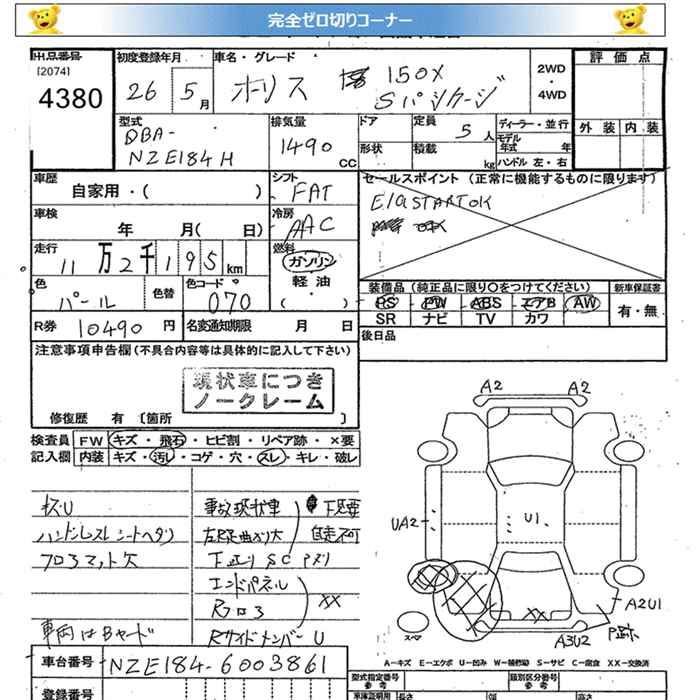 完全ゼロ切りコーナー
出品番号
[2074]
4380
初度登録年月
26 5月
車名・グレード
ホリス 150X
Sパッケージ
2WD
・
4WD
評価点
外装 内装
型式
DBA-
NZE184H
排気量
1490 CC
ドア
形状
定員 5人
積載 kg
ディーラー・並行
モデル年式 年
ハンドル 左・右
車歴
自家用・( )
シフト
FAT
セールスポイント (正常に機能するものに限ります)
E/G STARTOK
車検
年 月( 日)
冷房
AAC
走行
11万2千195km
燃料
ガソリン
軽油
・
( )
色
パール
色替
色コード
070
装備品 (純正品に限り○をつけてください)
PS PW ABS エアB AW
SR ナビ TV カワ
新車保証書
有・無
R券 10490円
名変通知期限 月 日
後日品
注意事項申告欄 (不具合内容等は具体的に記入して下さい)
現状車につき
ノークレーム
修復歴 有 〔箇所 〕
検査員
記入欄
FW キズ・飛石・ヒビ割・リペア跡・×要
内装 キズ・汚レ・コゲ・穴・スレ・キレ・破レ
キズU
ハンドルスレ シートヘタリ
フロアマット欠
車両はBヤード
事故現状車
下廻りSCアリ
エンドパネル
Rフロア
XX
自走不可
RサイドメンバーU
A2
A2
UA2
U1
A2U1
A3U2
P跡
XX
スペア
A−キズ E−エクボ U−凹み W−補修跡 S−サビ C−腐食 XX−交換済
車台番号 NZE184-6003861
登録番号
型式指定番号
参考
類別区分番号
参考
車庫証明用
長さ
幅
高さ